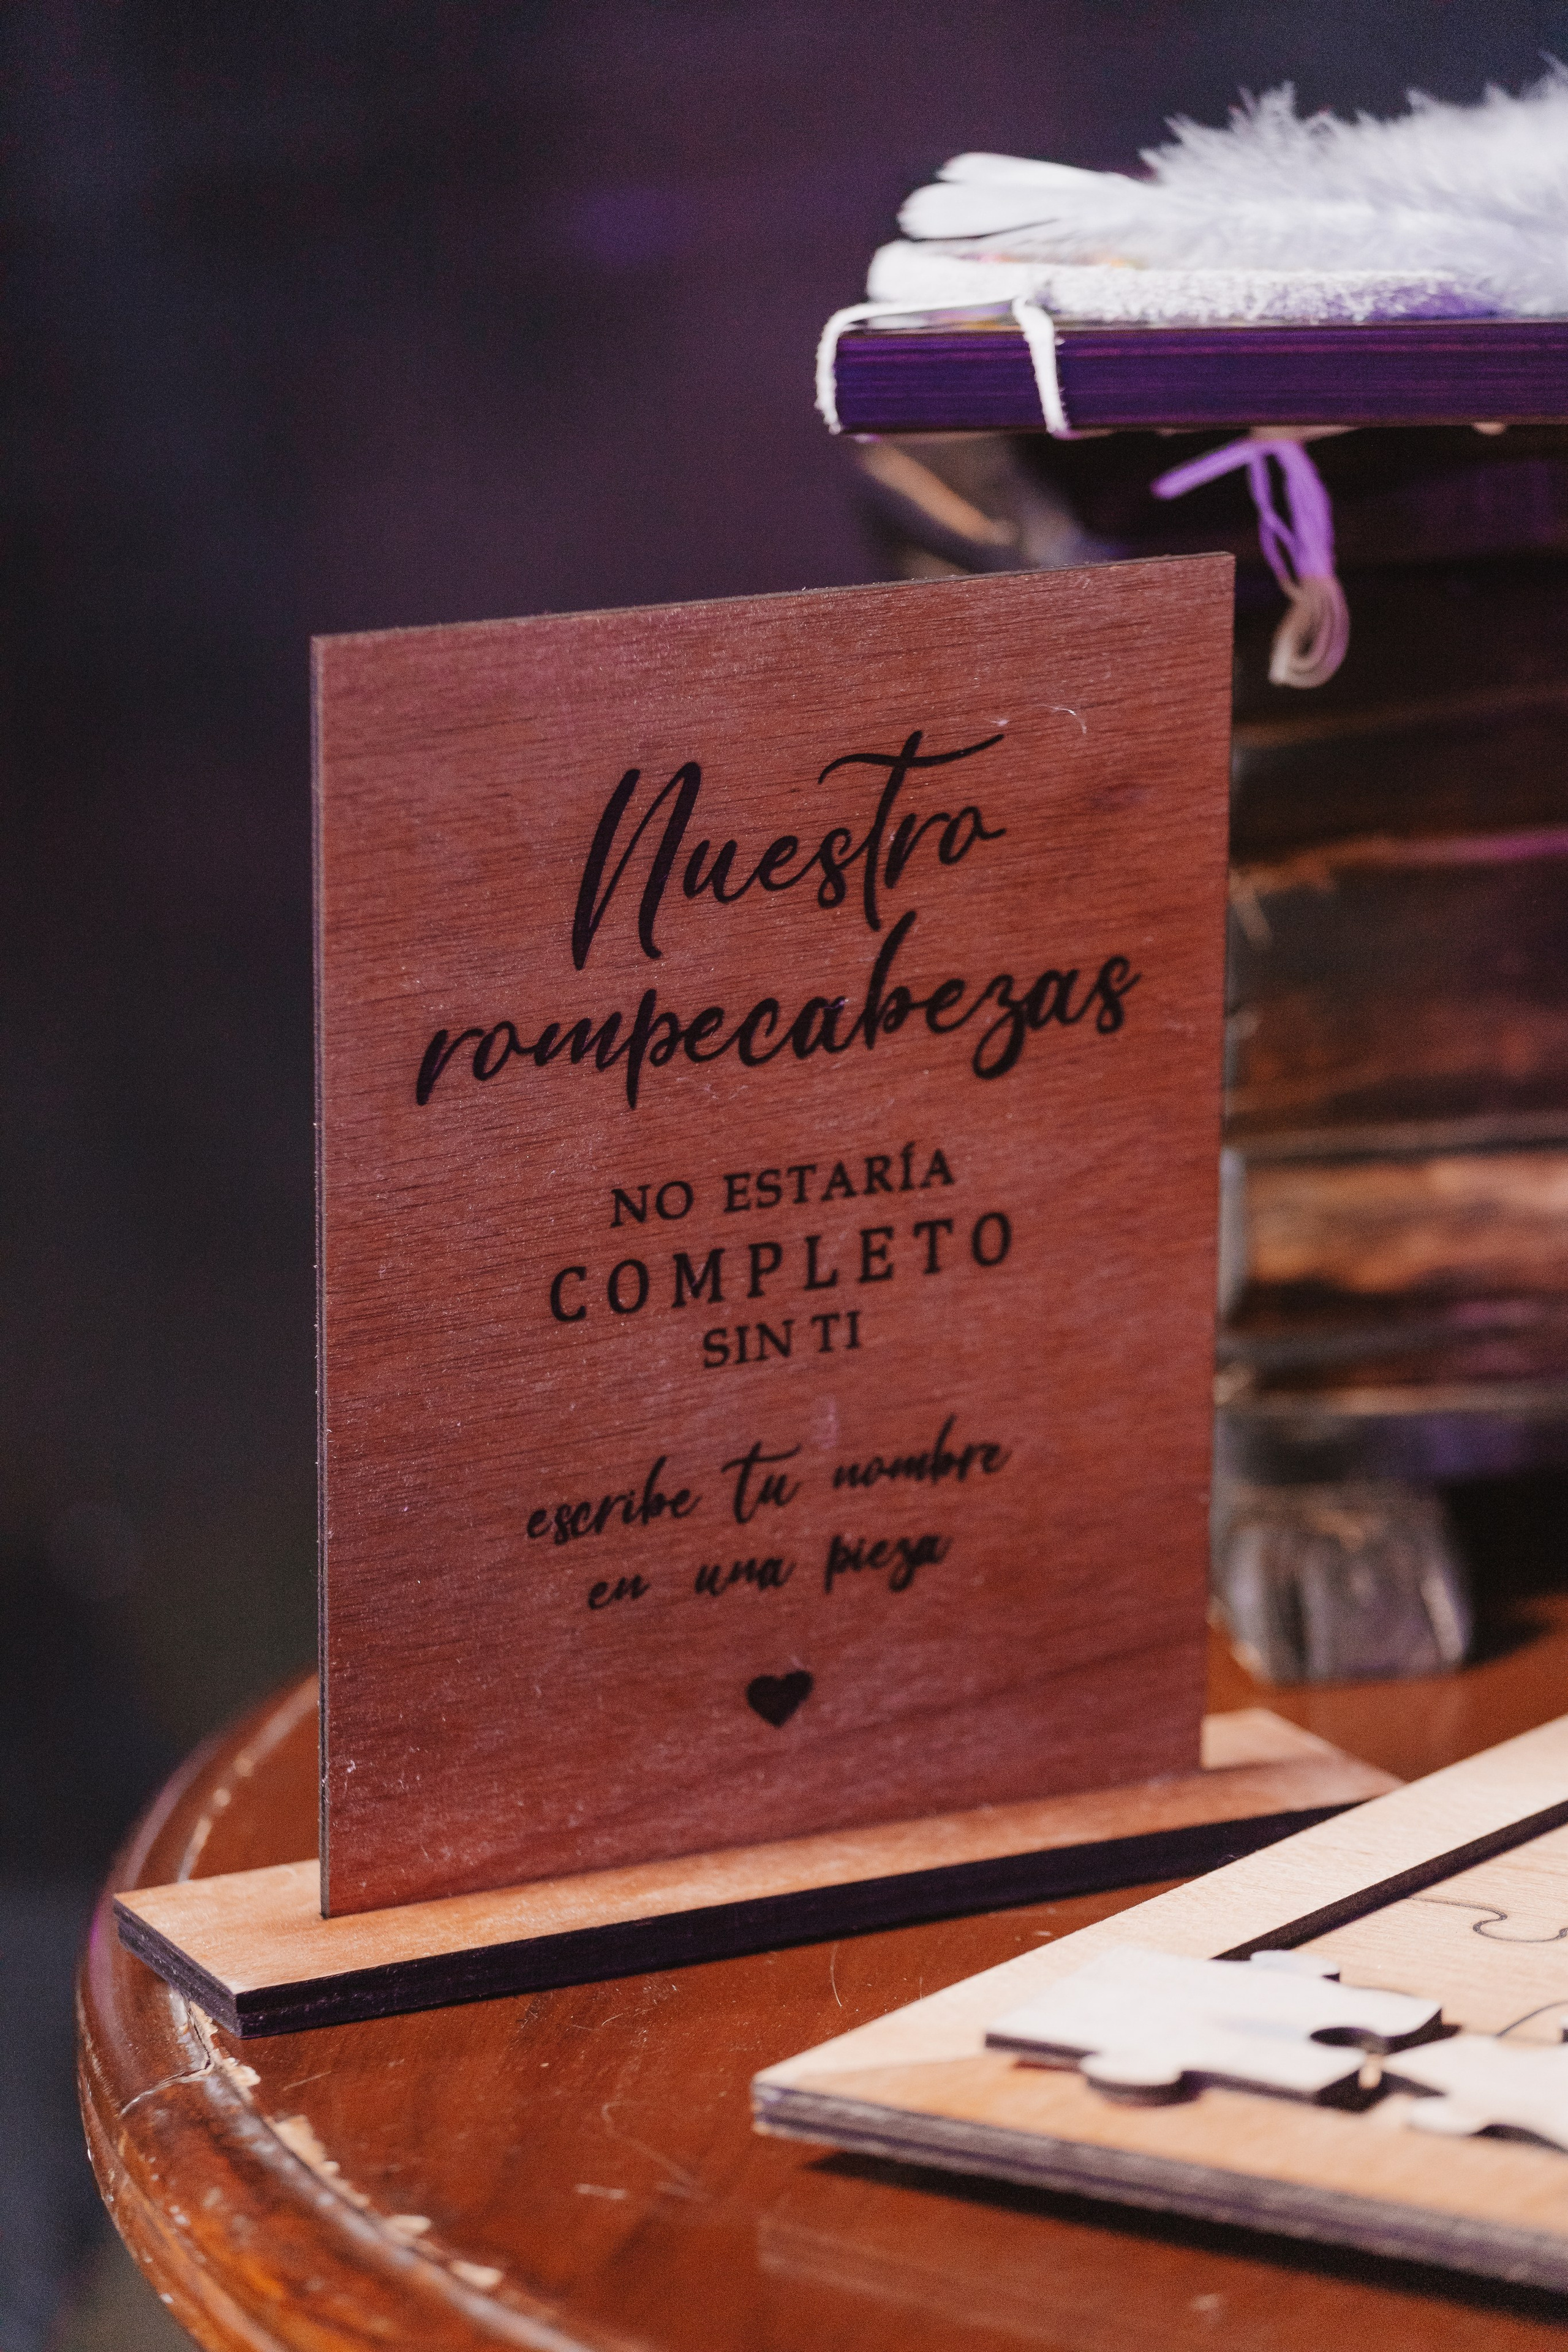 Nuestro
rompecabezas
NO ESTARÍA
COMPLETO
SIN TI
escribe tu nombre
en una pieza